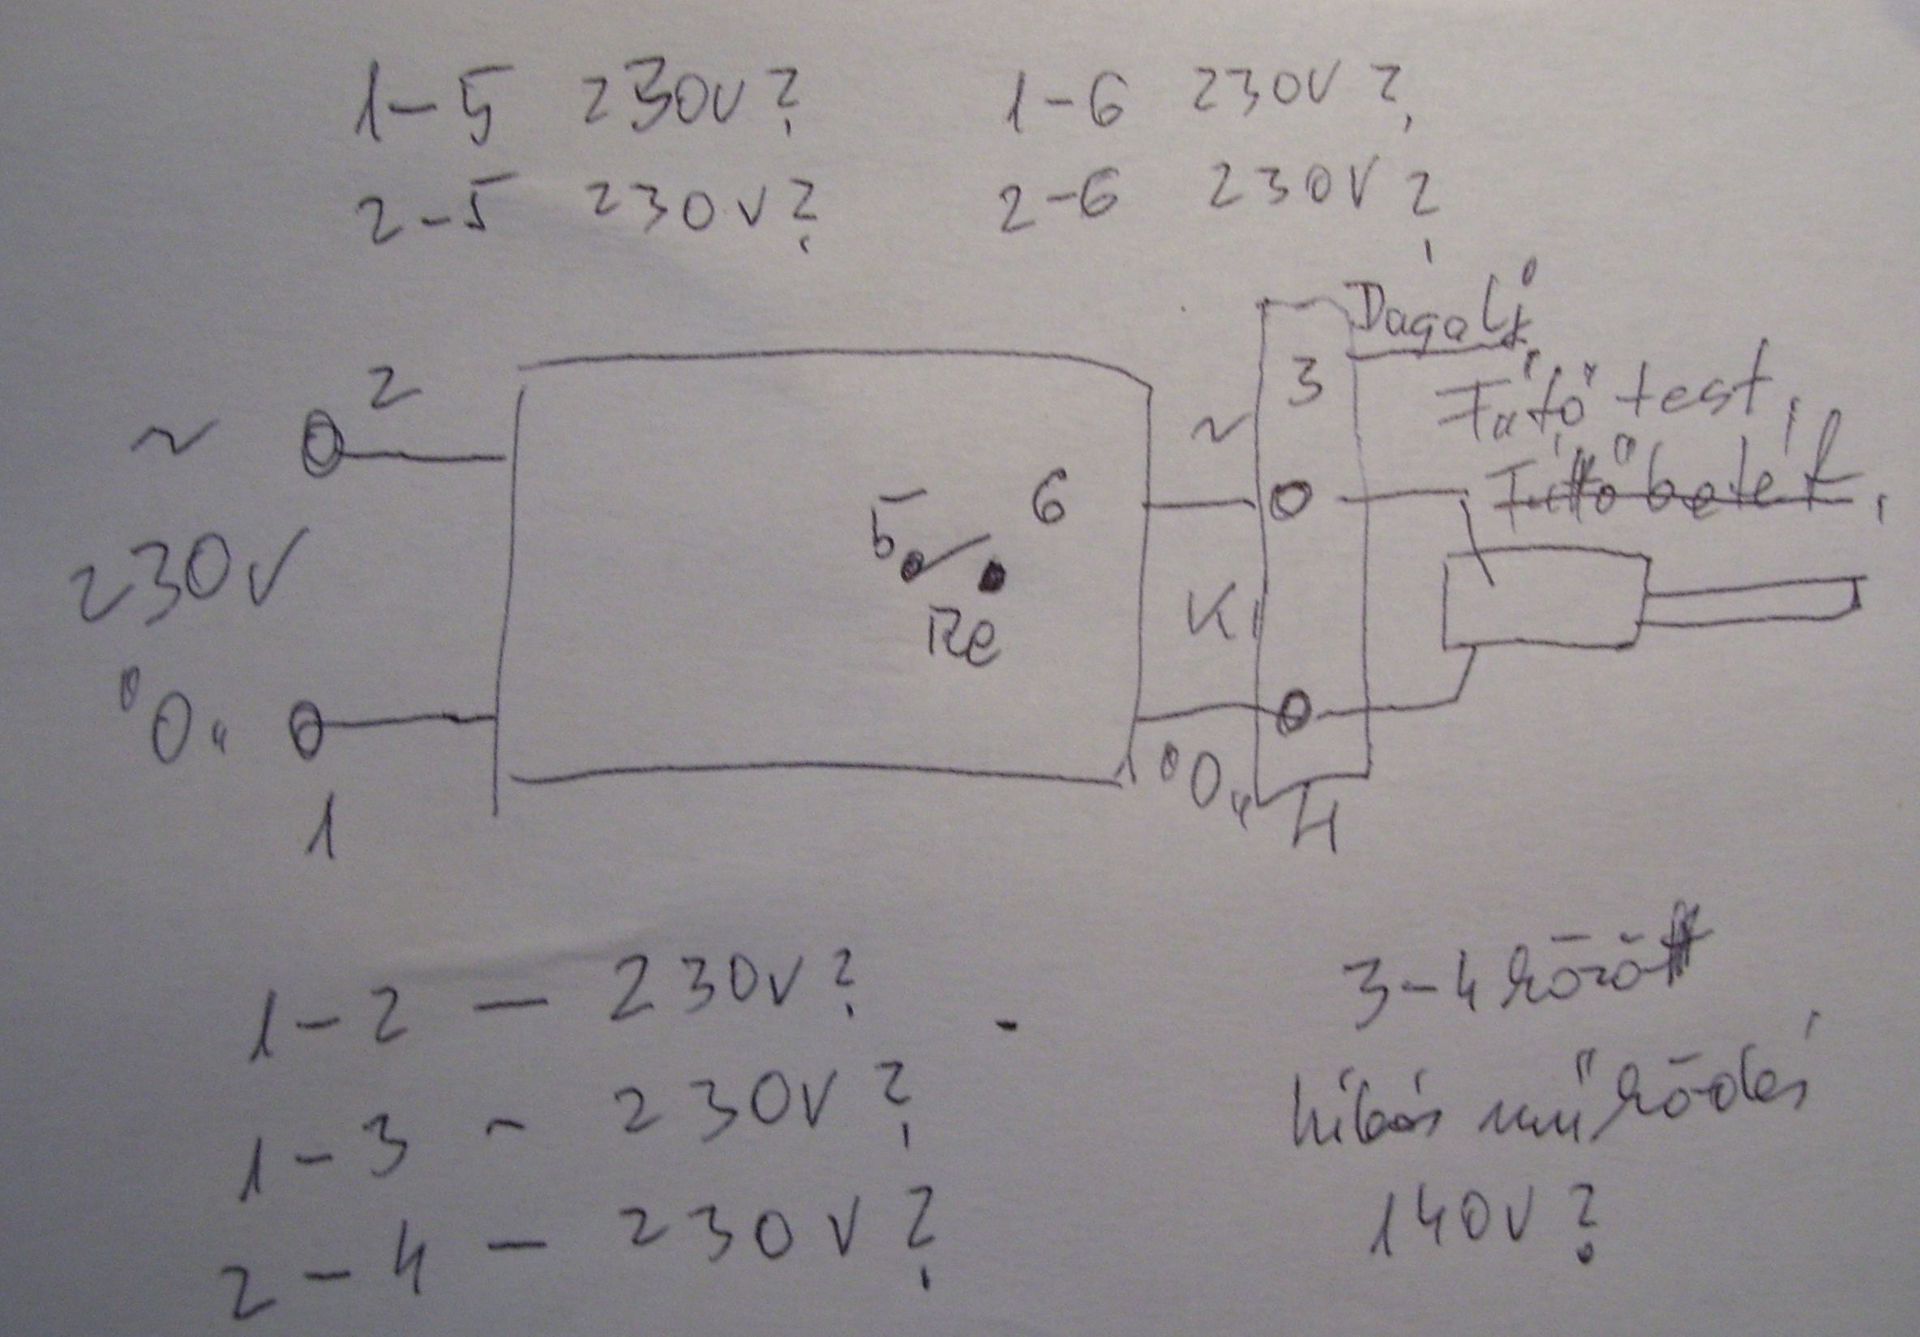 1-5 230V?
1-6 230V?
2-5 230V?
2-6 230V?
Dagalj
2
~
3
~
Fűtő test.
Fűtőbetét.
5
6
230V
Re
K
"0"
1
"0"
4
1-2 - 230V?
3-4 között
1-3 - 230V?
hibás működés
2-4 - 230V?
140V?